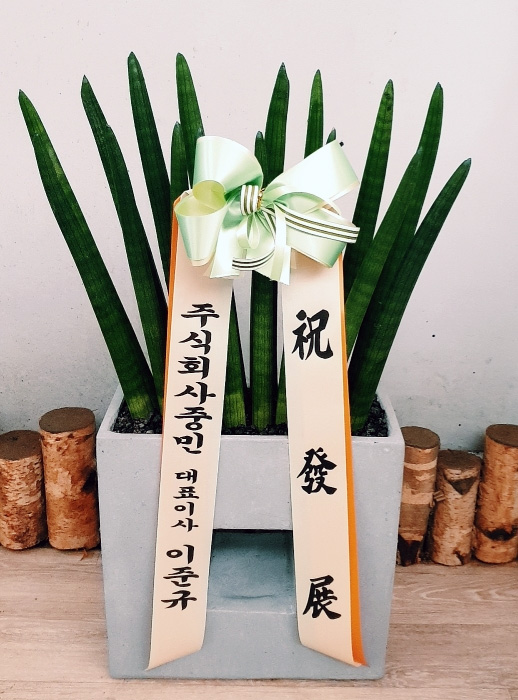 주식회사중민 대표이사 이준규
祝發展